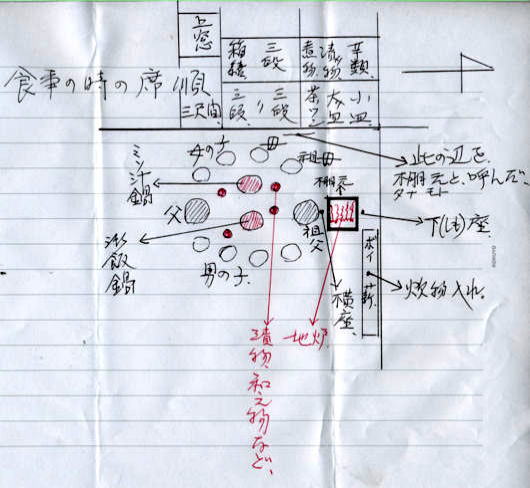 食事の時の席順
上窓
三尺間
箱膳
三段
三段
〃
三段
煮物
漬物
茶ワン
大皿
小皿
女の子
母
祖母
棚元
ミソ汁鍋
父
祖父
御飯鍋
男の子
此の辺を、
棚元と、呼んだ
タナモト
下(しも)座
ボイ薪
炊物入れ
横座
地炉
漬物和え物など、